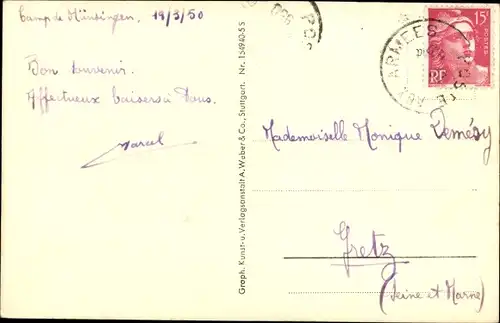 Camp de Münsingen, 19/3/50
Bon souvenir.
Affectueux baisers à tous.
Marcel
Graph. Kunst- u. Verlagsanstalt A. Weber & Co., Stuttgart. Nr. 154940-5 S
POS
15F
POSTES
RF
POSTE AUX ARMEES
Mademoiselle Monique Demésy
Gretz
(Seine et Marne)